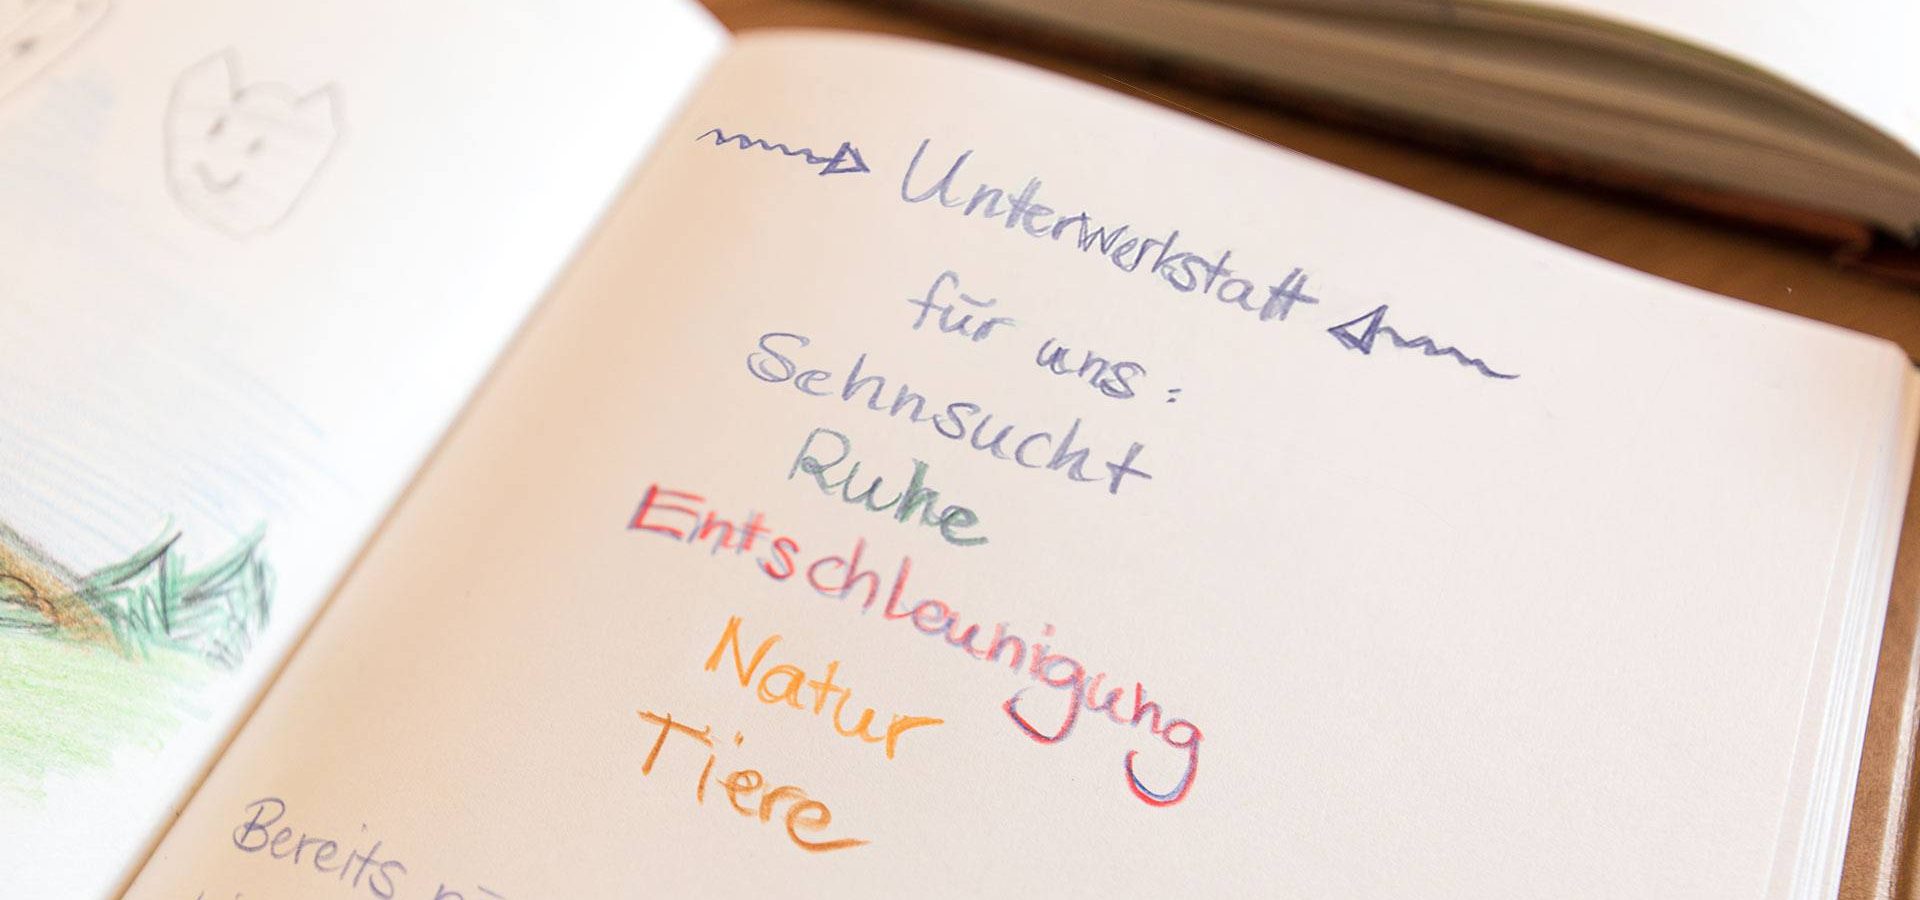 Unterwerkstatt
für uns:
Sehnsucht
Ruhe
Entschleunigung
Natur
Tiere
Bereits